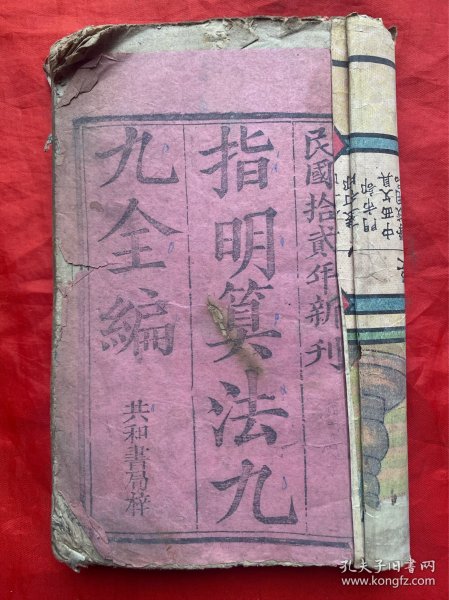 民國拾貳年新刊
指明算法九
九全編
共和書局梓
中西文具
門市部
孔夫子旧书网
www.kongfz.com